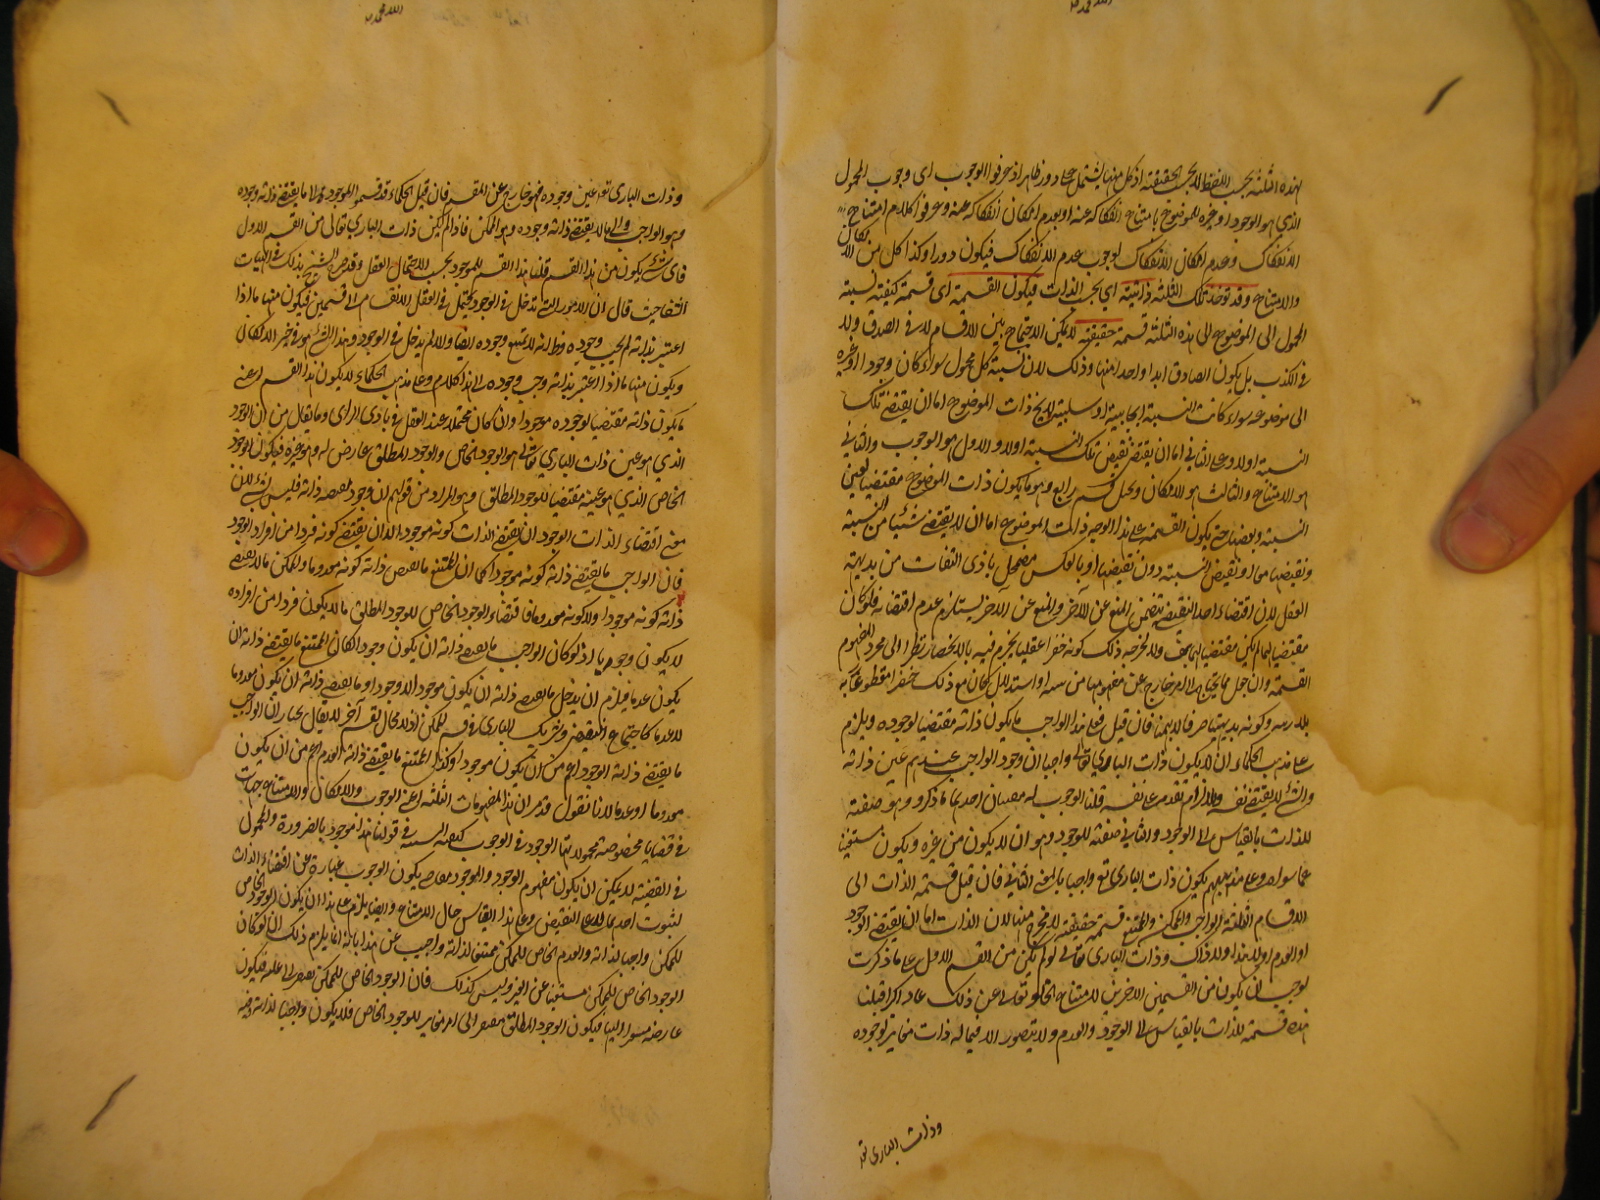 هذه الثلثة بحسب اللفظ لا بحسب الحقيقة اذ كل منها يشتمل على دور ظاهر اذ عرفوا الوجوب اى وجوب المحمول
الذي هو الوجود او غيره للموضوع بامتناع انفكاكه عنه او بعدم امكان انفكاكه عنه وعرفوا كلا من امتناع
الانفكاك وعدم امكان الانفكاك لوجوب عدم الانفكاك فيكون دورا وكذا كل من الامكان
والامتناع وقد توخذ تلك الثلثة ذاتية اي بحسب الذات فيكون القسمة اى قسمة كيفية نسبة
المحمول الى الموضوع الى هذه الثلثة قسمة حقيقية لا يمكن الاجتماع بين الاقسام لا في الصدق ولا
في الكذب بل يكون الصادق ابدا واحدا منها وذلك لان نسبة كل محمول سواء كان وجودا او غيره
الى موضوعه سواء كانت النسبة ايجابية او سلبية لا يخ ذات الموضوع اما ان يقتضي تلك
النسبة اولا وعلى الثاني اما ان يقتضي نقيض تلك النسبة اولا والاول هو الوجوب والثاني
هو الامتناع والثالث هو الامكان وتحمل قسم رابع وهو ما يكون ذات الموضوع مقتضيا لعين
النسبة ونقيضها حتى يكون القسمة على هذا الوجه ذات الموضوع اما ان لا يقتضي شيئا من النسبة
ونقيضها معا او نقيض النسبة دون نقيضها او بالعكس مضمحل بادنى التفات من بديهة
العقل لان اقتضاء احد النقيضين يتضمن المنع عن الآخر والمنع عن الاخر يستلزم عدم اقتضائه فلو كان
مقتضيا لهما لم يكن مقتضيا لهما هف ولا يخرجه ذلك كونه حصرا عقليا يجزم فيه بالانحصار نظرا الى مجرد المفهوم
بلا ريبه وكونه بديهيا فان قيل فعلى هذا الواجب ما يكون ذاته مقتضيا لوجوده ويلزم
على مذهب الحكماء ان لا يكون ذات الباري تعالى واجبا لان وجود الواجب عندهم عين ذاته
والشئ لا يقتضي نفسه والا لزم تقدمه على نفسه قلنا الوجوب له معنيان احدهما ما ذكر وهو صفة
للذات بالقياس الى الوجود والثاني صفة للوجود وهو ان لا يكون من غيره ويكون مستغنيا
عما سواه وعلى مذهبهم يكون ذات البارى تع واجبا بالمعنى الثاني فان قيل قسمة الذات الى
الاقسام الثلثة الواجب والممكن والممتنع قسمة حقيقية لا مخرج منها لان الذات اما ان يقتضي الوجود
او العدم او لا هذا ولا ذاك وذات البارى تعالى لو لم يكن من القسم الاول على ما ذكرت
لوجب ان يكون من القسمين الاخرين لامتناع الخلو تعالى عن ذلك علوا كبيرا قلنا
هذه قسمة للذات بالقياس الى الوجود والعدم ولا يتصور الا فيما له ذات مغاير لوجوده
وذات البارى تع
وذات البارى تع عين وجوده فهو خارج عن المقسم فان قيل الحكماء قد قسموا الموجود الى ما يقتضي ذاته وجوده
وهو الواجب والى ما لا يقتضي ذاته وجوده وهو الممكن فاذا لم يكن ذات البارى تعالى من القسم الاول
فاى شئ يكون من هذا القسم قلنا هذا القسم للموجود بحسب الاحتمال العقلى وقد صرح الشيخ بذلك في الهيات
الشفا حيث قال ان الامور التي تدخل في الوجود يحتمل في العقل الانقسام الى قسمين فيكون منها ما اذا
اعتبر بذاته لم يجب وجوده وظاهر انه لا يمتنع وجوده ايضا والا لم يدخل في الوجود وهذا الشئ هو في حيز الامكان
ويكون منها ما اذا اعتبر بذاته وجب وجوده الى هنا كلامه وعلى مذهب الحكماء لا يكون هذا القسم اعنى
ما يكون ذاته مقتضيا لوجوده موجودا وان كان محتملا عند العقل في بادى الراى وما يقال من ان الوجود
الذي هو عين ذات البارى تعالى هو الوجود الخاص والوجود المطلق عارض له وهو غيره فيكون الوجود
الخاص الذي هو عينه مقتضيا للوجود المطلق وهو المراد من قولهم ان وجوده يقتضيه ذاته فليس بشئ لان
معنى اقتضاء الذات الوجود ان يقتضي الذات كونه موجودا لا ان يقتضي كونه فردا من افراد الوجود
فان الواجب ما يقتضي ذاته كونه موجودا كما ان الممتنع ما يقتضي ذاته كونه معدوما والممكن ما لا يقتضي
ذاته كونه موجودا ولا كونه معدوما فاقتضاء الوجود الخاص للوجود المطلق ما لا يكون فردا من افراده
لا يكون وجوبا اذ لو كان الواجب ما يقتضي ذاته ان يكون وجودا لكان الممتنع ما يقتضي ذاته ان
يكون عدما فيلزم ان يدخل ما يقتضي ذاته ان يكون موجودا لا وجودا وما يقتضي ذاته ان يكون معدوما
لا عدما كاجتماع النقيضين وشريك البارى في الممكن اذ لا مجال لقسم آخر لا يقال نختار ان الواجب
ما يقتضي ذاته الوجود اعم من ان يكون موجودا وكذا الممتنع ما يقتضي ذاته العدم اعم من ان يكون
معدوما او عدما لانا نقول قد مر ان هذه المفهومات الثلثة اعنى الوجوب والامكان والامتناع جهات
في قضايا مخصوصة محمولاتها الوجود في الوجوب كيفية النسبة في قولنا هذا موجود بالضرورة والمحمول
في القضية لا يمكن ان يكون مفهوم الوجود والموجود معا حتى يكون الوجوب عبارة عن اقتضاء الذات
لثبوت احدهما لا على التعيين وعلى هذا القياس حال الامتناع وايضا يلزم على هذا ان يكون الوجود الخاص
للممكن واجبا لذاته والعدم الخاص للممكن ممتنعا لذاته واجيب عن هذا بانه انما يلزم ذلك ان لو كان
الوجود الخاص للممكن مستغنيا عن الغير وليس كذلك فان الوجود الخاص للممكن يفتقر الى علة فيكون
عارضه مستندا اليها فيكون الوجود المطلق مفتقرا الى امر مغاير للوجود الخاص فلا يكون واجبا لذاته وفيه